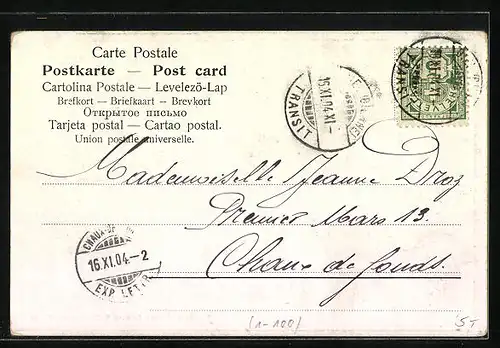 Carte Postale
Postkarte — Post card
Cartolina Postale — Levelező-Lap
Brefkort — Briefkaart — Brevkort
Открытое письмо
Tarjeta postal — Cartao postal.
Union postale universelle.
15.XI.04.XI-
TRANSIT
Mademoiselle Jeanne Droz
Premier Mars 13.
Chaux de fonds.
CHAUX-DE
16.XI.04.-2
EXP. LETTR.
(1-100)